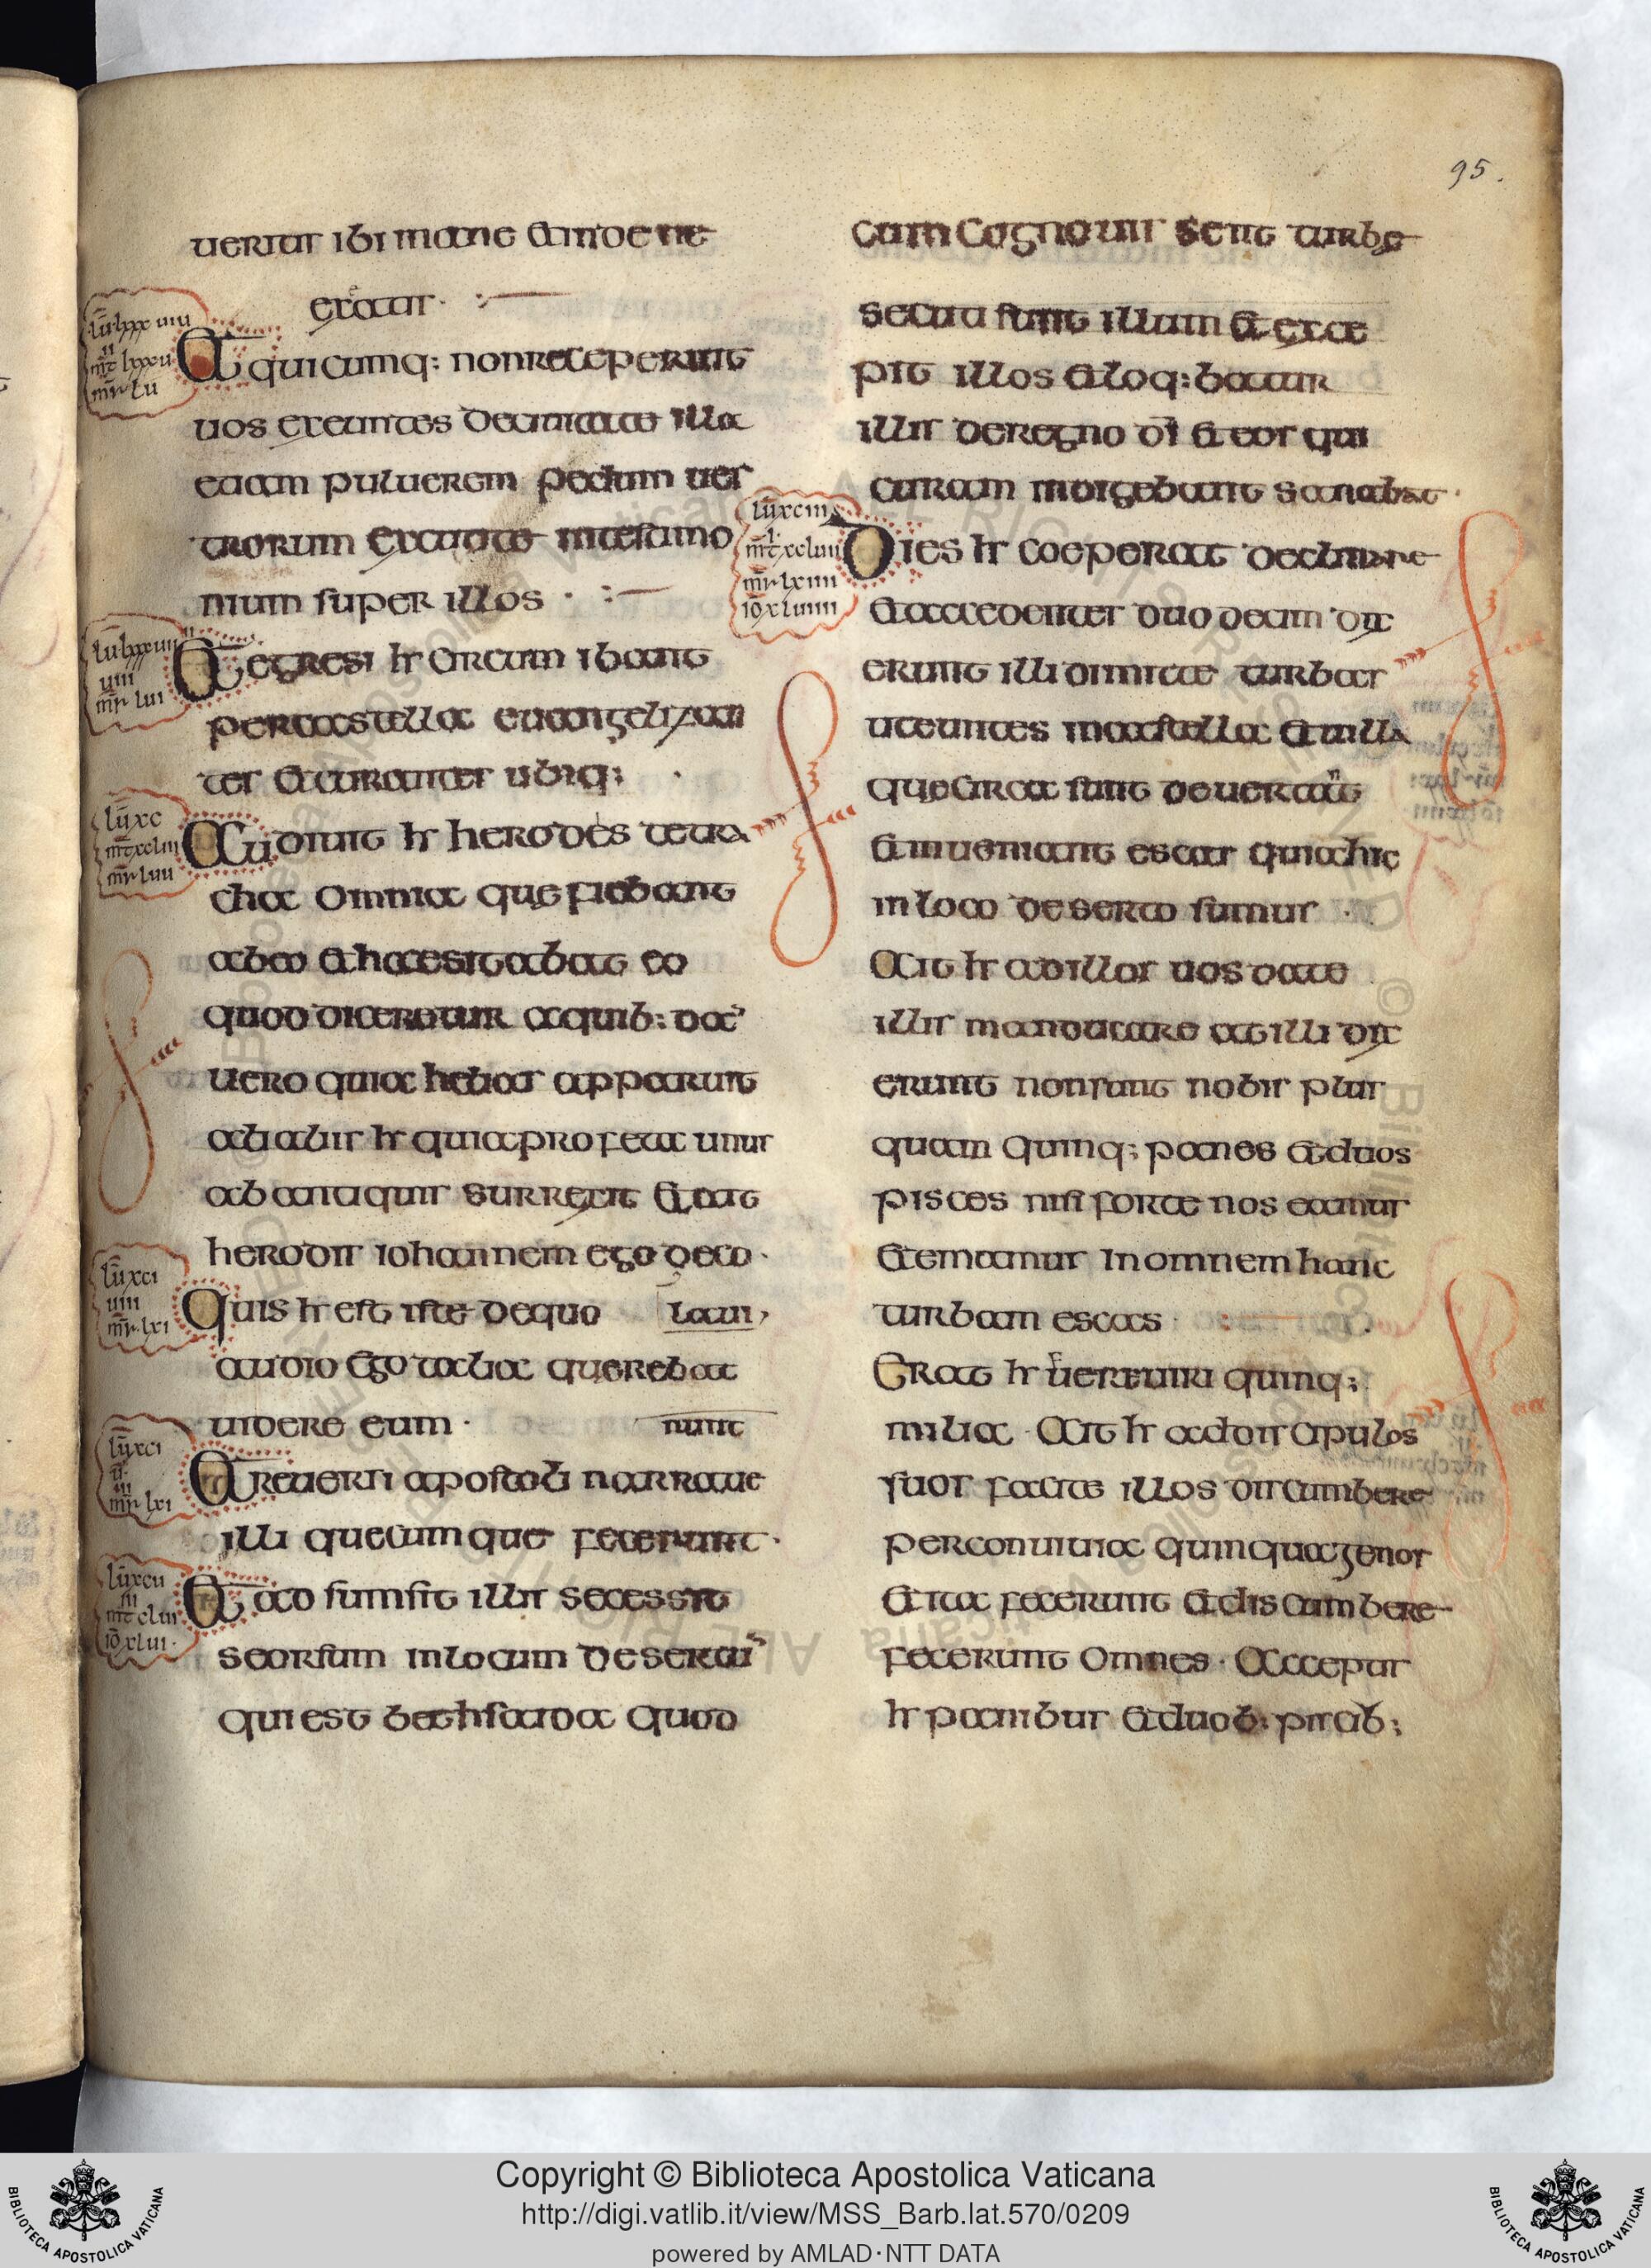 95.
ueritis ibi mane et inde ne
exeatis
Et quicumq: non receperint
uos exeuntes de ciuitate illa
etiam puluerem pedum ues
trorum excutite in testimo
nium super illos
Et egresi hr circum ibant
per castella euangelizan
tes et curantes ubiq;
Audiuit hr herodes tetra
cha omnia que fiebant
ab eo et haesitabat eo
quod diceretur a quib:
uero quia helias apparuit
ab aliis hr quia profeta unus
ab antiquis surrexit et ait
herodis iohannem ego deco
Quis hr est iste de quo laui
audio ego talia querebat
uidere eum
nunt
Et reuersi apostoli narraue
illi quecumque fecerunt
Et adsumsit illis secessit
seorsum in locum deserti
qui est bethsaida quod
cum cognouissent turbe
secuti sunt illum et exce
pit illos et loq:batur
illis de regno dī et eos qui
curam indigebant sanabat
Dies hr coeperat declinare
et accedentes duodecim dix
erunt illi dimitte turbas
ut euntes in castella et uilla
que circa sunt deuertant
et inueniant escas quia hic
in loco deserto sumus
Ait hr ad illos uos date
illis manducare at illi dix
erunt non sunt nobis plus
quam quinq; panes et duos
pisces nisi forte nos eamus
et emamus in omnem hanc
turbam escas
Erat hr fere uiri quinq;
milia Ait hr ad discipulos
suos facite illos discumbere
per conuiuia quinquagenos
et ita fecerunt et discumbere
fecerunt omnes Acceptis
hr panibus et duob: piscib;
Copyright © Biblioteca Apostolica Vaticana
http://digi.vatlib.it/view/MSS_Barb.lat.570/0209
powered by AMLAD·NTT DATA
BIBLIOTECA APOSTOLICA VATICANA
BIBLIOTECA APOSTOLICA VATICANA